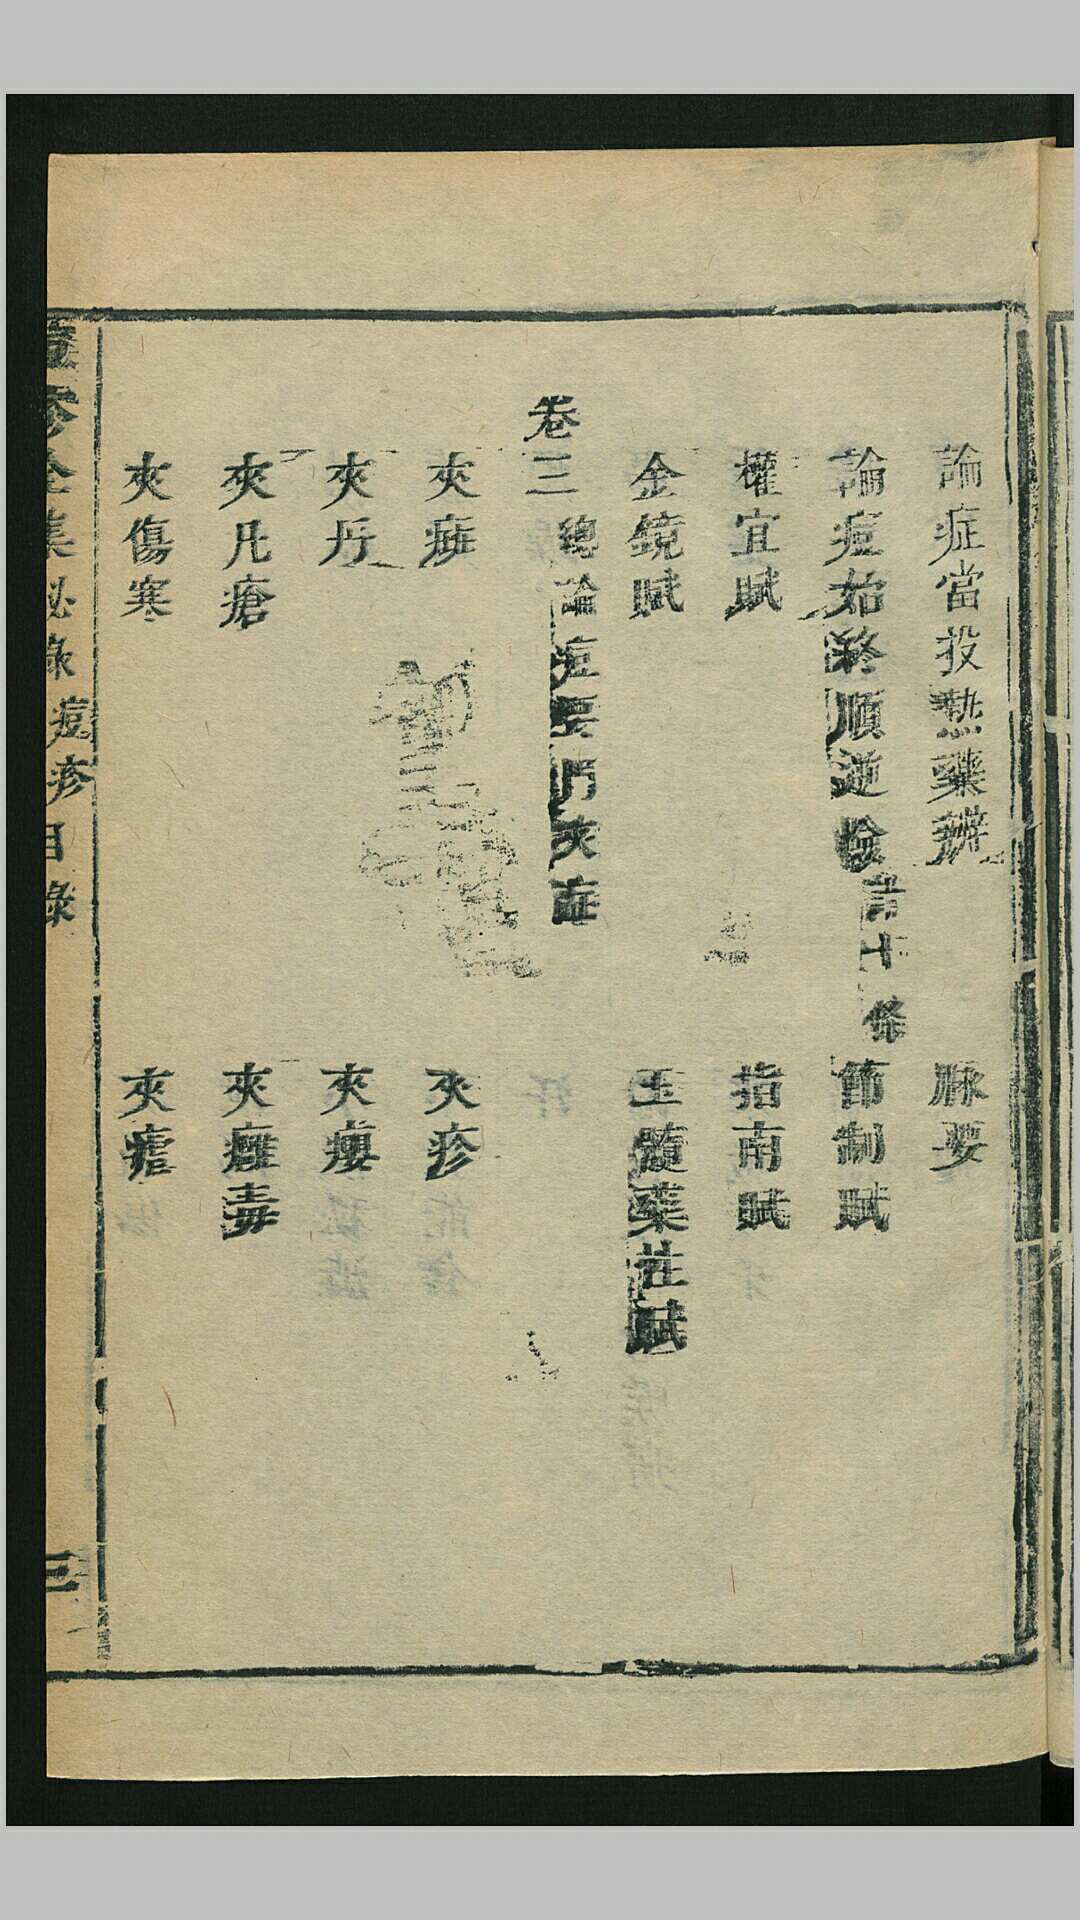 論症當投熱藥辨　脉要
論痘始終順逆險計十條　節制賦
權宜賦　指南賦
金鏡賦　玉髓藥性賦
卷三　總論痘要門夾症
夾痲　夾疹
夾丹　夾癭
夾凡瘡　夾癰毒
夾傷寒　夾瘧
疹全集秘錄痘疹目錄　三